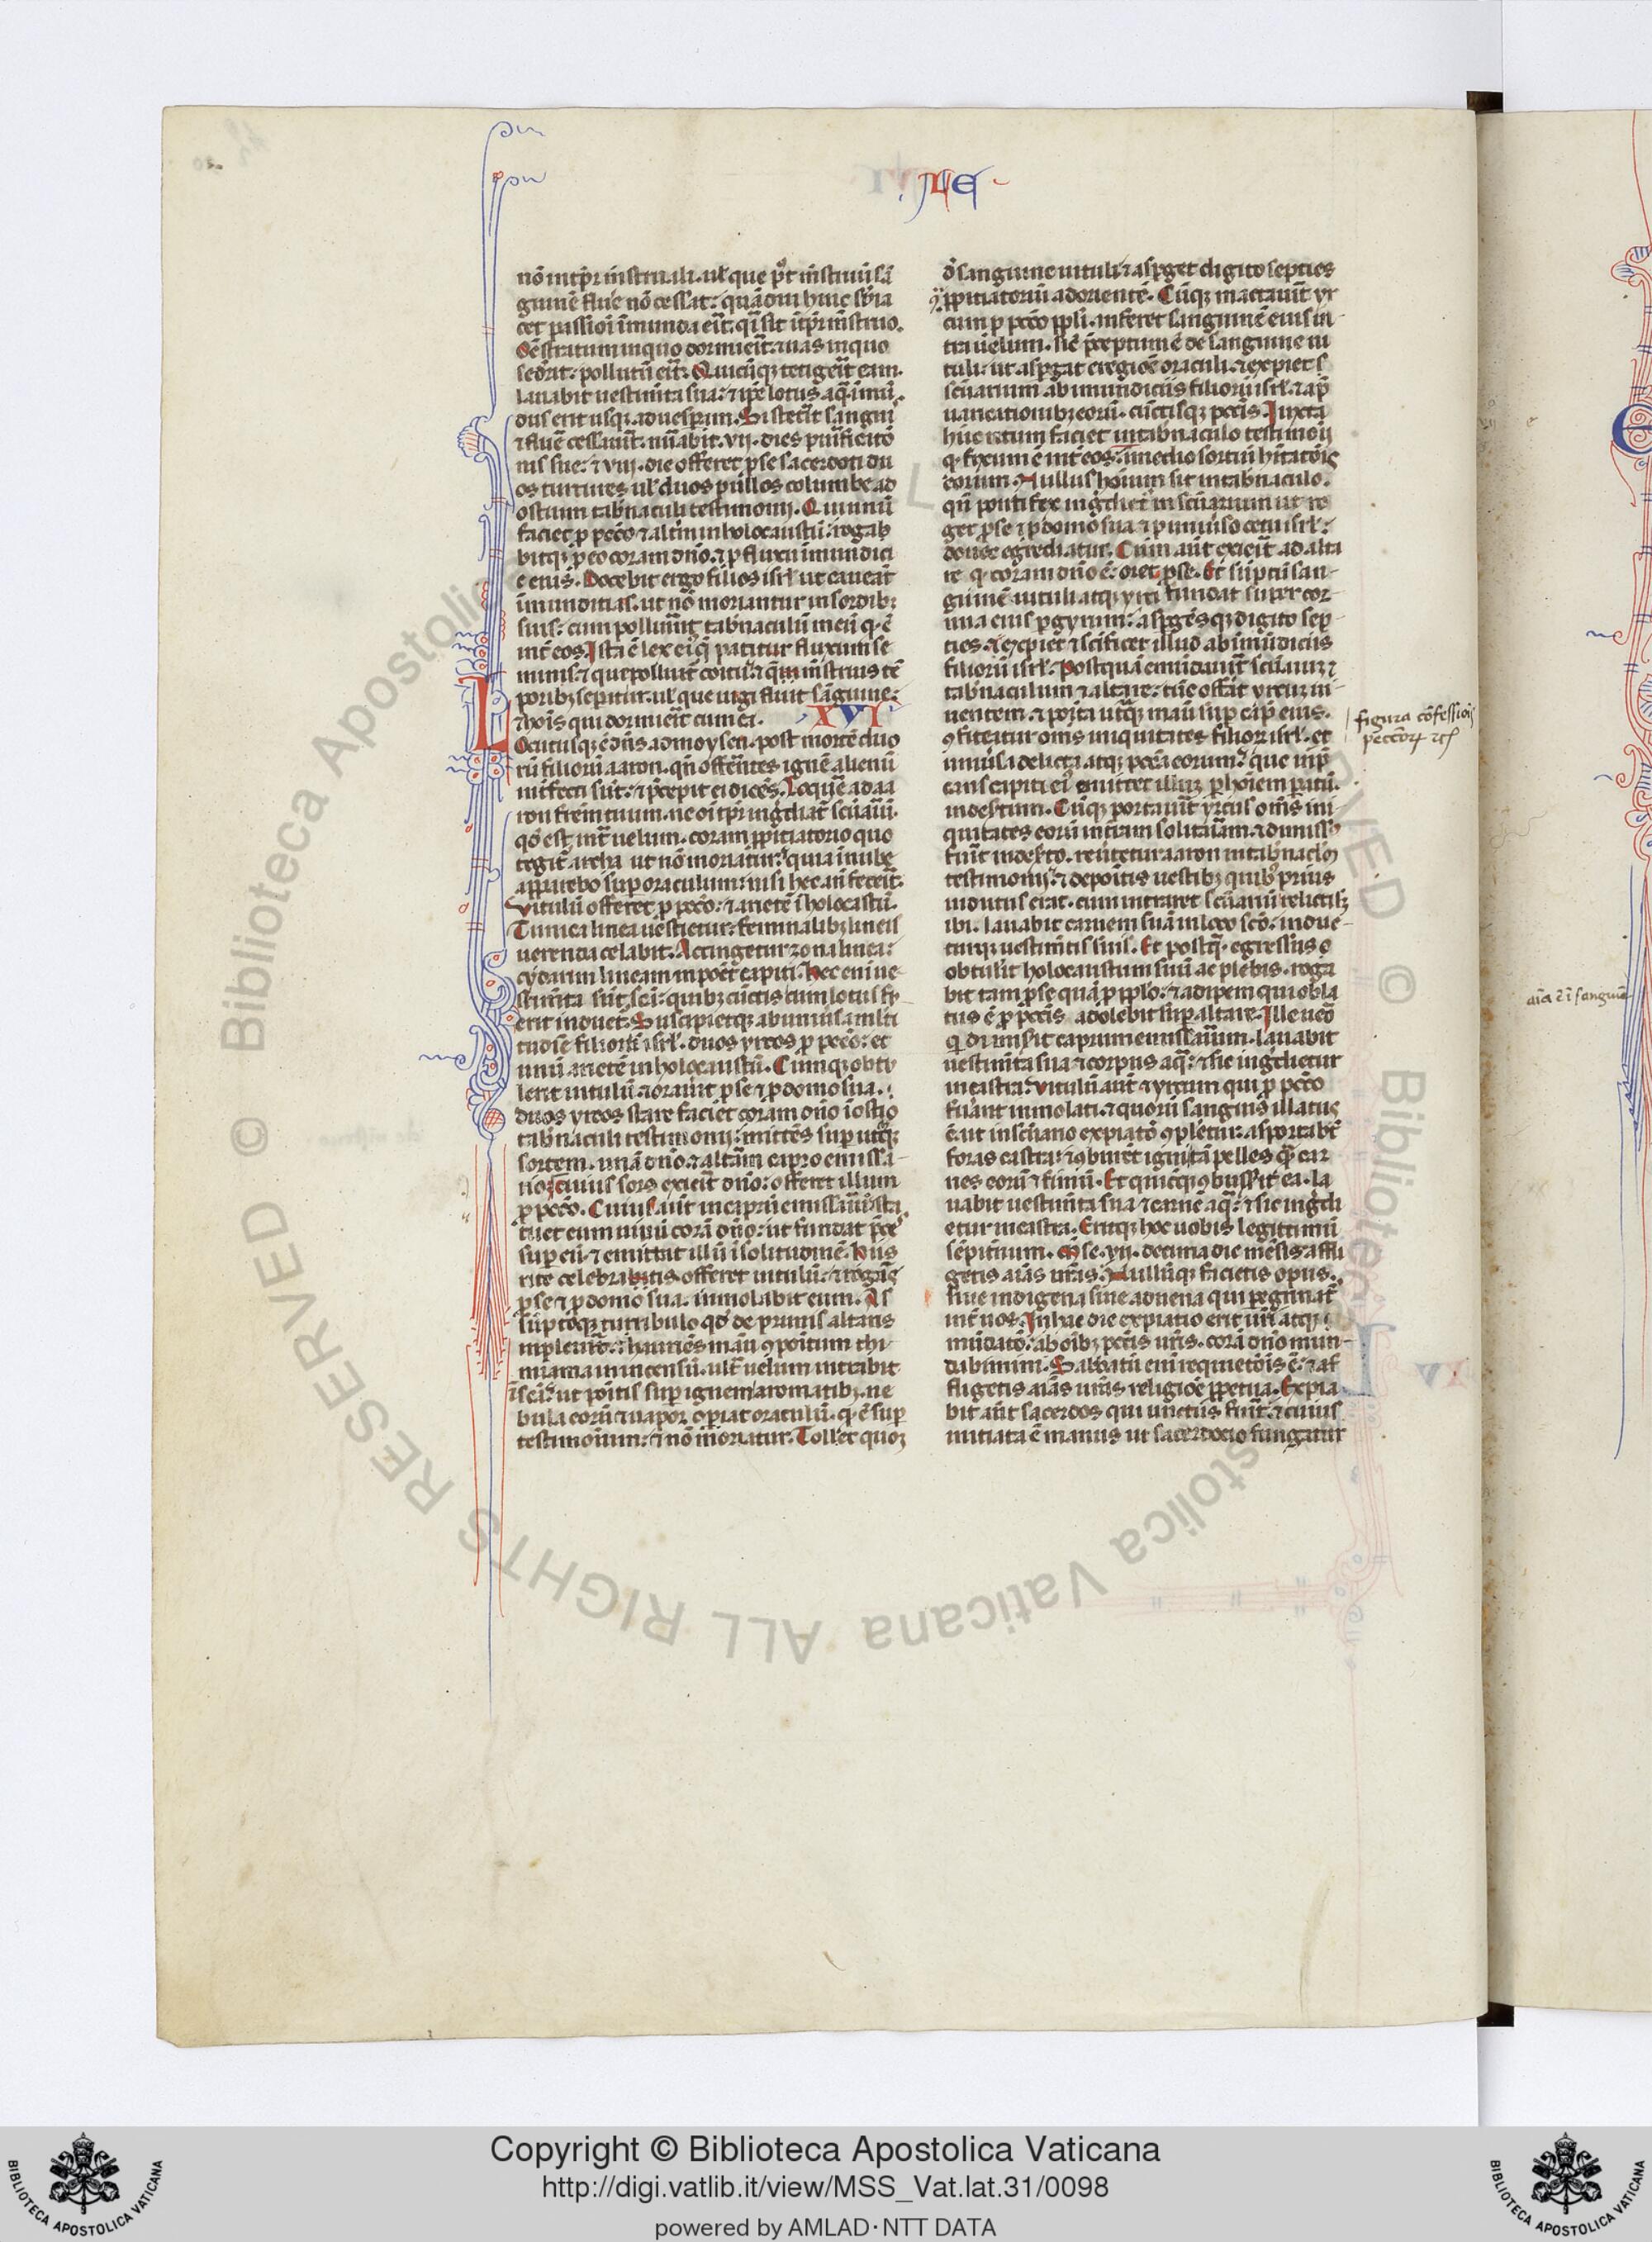 LE
nō ī tp̄r īnstruali. ul' que p̄t īnstruū sā
guinē fluē nō cessat: quādiu huic sbia
cet passiōi īmunda eīt: q̄si sit ī tp̄r mēstruo.
Oē stratum in quo dormieīt: ⁊ uas in quo
sedīt: pollutū eīt. Quicūq; tetigeīt eam.
lauabit uestimīta sua: ⁊ ip̄e lotus aq̄. īmū
dus erit usq; ad uesp̄am. Si steteīt sangui
⁊ fluē cessauīt: nūabit .vii. dies purificatō
nis sue: ⁊ viii. die offeret p̄ se sacerdoti du
os turtures ul' duos pullos columbe ad
ostium tab̄naculi testimonij. Qui unū
faciet p̄ pccō ⁊ altm̄ in holocaustū: roga
bitq; p̄ eo coram dn̄o. ⁊ p̄ fluxu īmundici
e eius. Docebit ergo filios isrl' ut caueāt
īmunditias. ut nō moriantur in sordib;
suis: cum polluīnt tab̄naculū meū q. ē
int̄ eos. Ista ē lex ei q̄ patitur fluxum se
minis: ⁊ que polluīt coitu: ⁊ q̄ m̄struis tē
porib; sep̄atur. ul' que iugi fluit sāguine:
⁊ hōis qui dormieīt cum ea. XVI
Locutusq; ē dn̄s ad moysen. post mortē duo
rū filiorū aaron. qn̄ offerētes ignē alienū
int̄fecti sūt: ⁊ p̄cepit ei dicēs. Loq̄re ad aa
ron fr̄em tuum. ne oī tp̄r ingrediat̄ scūariū.
qd̄ est int̄ uelum. coram p̄pitiatorio quo
tegit̄ archa ut nō moriatur: quia ī nube
apparebo sup oraculum: nisi hec an̄ feceīt.
Vitulū offeret p̄ pccō: ⁊ arietē ī holocaustū.
Tunica linea uestietur: feminalib; lineis
uerenda celabit. Accingetur zona linea:
cydarim lineam inponet capiti. Hec eni ue
stimīta sūt sc̄a: quib; cūctis cum lotus fu
erit induet̄. Suscipietq; ab uniuīsa multi
tudīe filiorū isrl'. duos yrcos p̄ pccō: et
unū arietē in holocaustū. Cumq; obtu
lerit uitulū ⁊ orauīt p̄ se ⁊ p̄ domo sua.
duos yrcos stare faciet coram dn̄o ī ostio
tab̄naculi testimonij: mittēs sup utrūq;
sortem. unā dn̄o. ⁊ altam capro emissa
rio. Cuius sors exieīt dn̄o: offeret illum
p̄ pccō. Cuius aūt in caprū emissariū sta
tuet eum uiuū corā dn̄o: ut fundat p̄ces
sup eū. ⁊ emittat illū ī solitudinē. Hiis
rite celebratis. offeret uitulū: ⁊ rogās
p̄ se ⁊ p̄ domo sua. immolabit eum. As
sūptoq; turribulo qd̄ de prunis altaris
īpleuīt: ⁊ hauriēs manu cōpositum thi
miama in incensū. ult̄ uelum intrabit
ī sc̄a: ut positis sup ignem aromatib;. ne
bula eorū ⁊ uapor opiat oraculū. q. ē sup
testimonium: ⁊ nō moriatur. Tollet quoq;
d̄ sanguine uituli: ⁊ asp̄get digito septies
ꝯ p̄pitiatoriū ad orientē. Cūq; mactauīt yr
cum p̄ pccō pp̄li. inferet sanguinē eius in
tra uelum. sic̄ p̄ceptum ē de sanguine ui
tuli: ut asp̄gat e regiōe oraculi. ⁊ expiet s
scūarium ab īmundiciis filiorū isrl'. ⁊ ap̄
uaricationib; eorū. cūctisq; pccīs. Iuxta
hūc ritum faciet in tab̄naculo testimōij
q. fixum ē int̄ eos. ī medio sortiū hītatōīs
eorum. Nullus hōīum sit in tab̄naculo.
qn̄ pontifex ingrediet̄ in scūarium ut ro
get p̄ se ⁊ p̄ domo sua ⁊ p̄ uniuīso cetu isrl':
donec egrediatur. Cum aūt exieīt ad alta
re q. coram dn̄o ē: oret p̄ se. Et sūptū san
guinē uituli atq; yrci fundat super cor
nua eius p̄ gyrum: asp̄gēsq; digito sep
ties. ⁊ expiet ⁊ sc̄ificet illud ab īmūdiciis
filiorū isrl'. Postquā emūdauīt scūariū ⁊
tab̄naculum ⁊ altare: tūc offerat yrcum ui
uentem. ⁊ posita utrq; manū sup caput eius.
ꝯfiteatur om̄s iniquitates filior̄ isrl'. et
uniuīsa delicta atq; pccā eorum: que inp̄
cans capiti ei' emittet illum p̄ hōiem paratū.
in desertum. Cūq; portauīt yrcus om̄s ini
quitates eorū in terram solitariam. ⁊ dimiss'
fuīt in deserto. reūtetur aaron in tab̄naclm̄
testimonij: ⁊ depositis uestib; quib; prius
indutus erat. cum intraret scūariū relictisq;
ibi. lauabit carnem suā in loco scō: indue
turq; uestimētis suis. Et postq̄ egressus
obtulīt holocaustum suū ac plebis. roga
bit tam p̄ se quā p̄ pplo: ⁊ adipem qui obla
tus ē p̄ pccīs adolebit sup altare. Ille uero
q dimisīt caprum emissariū. lauabit
uestimīta sua ⁊ corpus aq̄: ⁊ sic ingredietur
in castra. Vitulū aūt ⁊ yrcum qui p̄ pccō
fuāt immolati. ⁊ quorū sanguis illatus
ē. ut in scūario expiatō ꝯpletur: asportabt̄
foras castra: ⁊ ꝯburēt igni tā pelles q̄ car
nes eorū ⁊ fimū. Et quicūq; ꝯbussīt ea. la
uabit uestimīta sua ⁊ carnē aq̄: ⁊ sic ingredi
etur in castra. Eritq; hoc uobis legittimū
sēpitīnum. Mēse .vii. decima die mēsis affli
getis aīas urās. Nullūq; facietis opus.
siue indigena siue aduena qui p̄egrinat̄
int̄ uos. In hac die expiatio erit urī atq;
mūdatō: ab oīb; pccīs urīs. corā dn̄o mun
dabimini. Sabbatū eni requietōis ē: ⁊ af
fligetis aīas urās religiōe p̄petua. Expia
bit aūt sacerdos qui unctus fuīt: ⁊ cuius
initiata ē manus ut sacerdocio fungatur
figura cōfessiōis
peccōꝝ
sanguīe
Copyright © Biblioteca Apostolica Vaticana
http://digi.vatlib.it/view/MSS_Vat.lat.31/0098
powered by AMLAD·NTT DATA
BIBLIOTECA APOSTOLICA VATICANA
BIBLIOTECA APOSTOLICA VATICANA
© Biblioteca Apostolica Vaticana ALL RIGHTS RESERVED